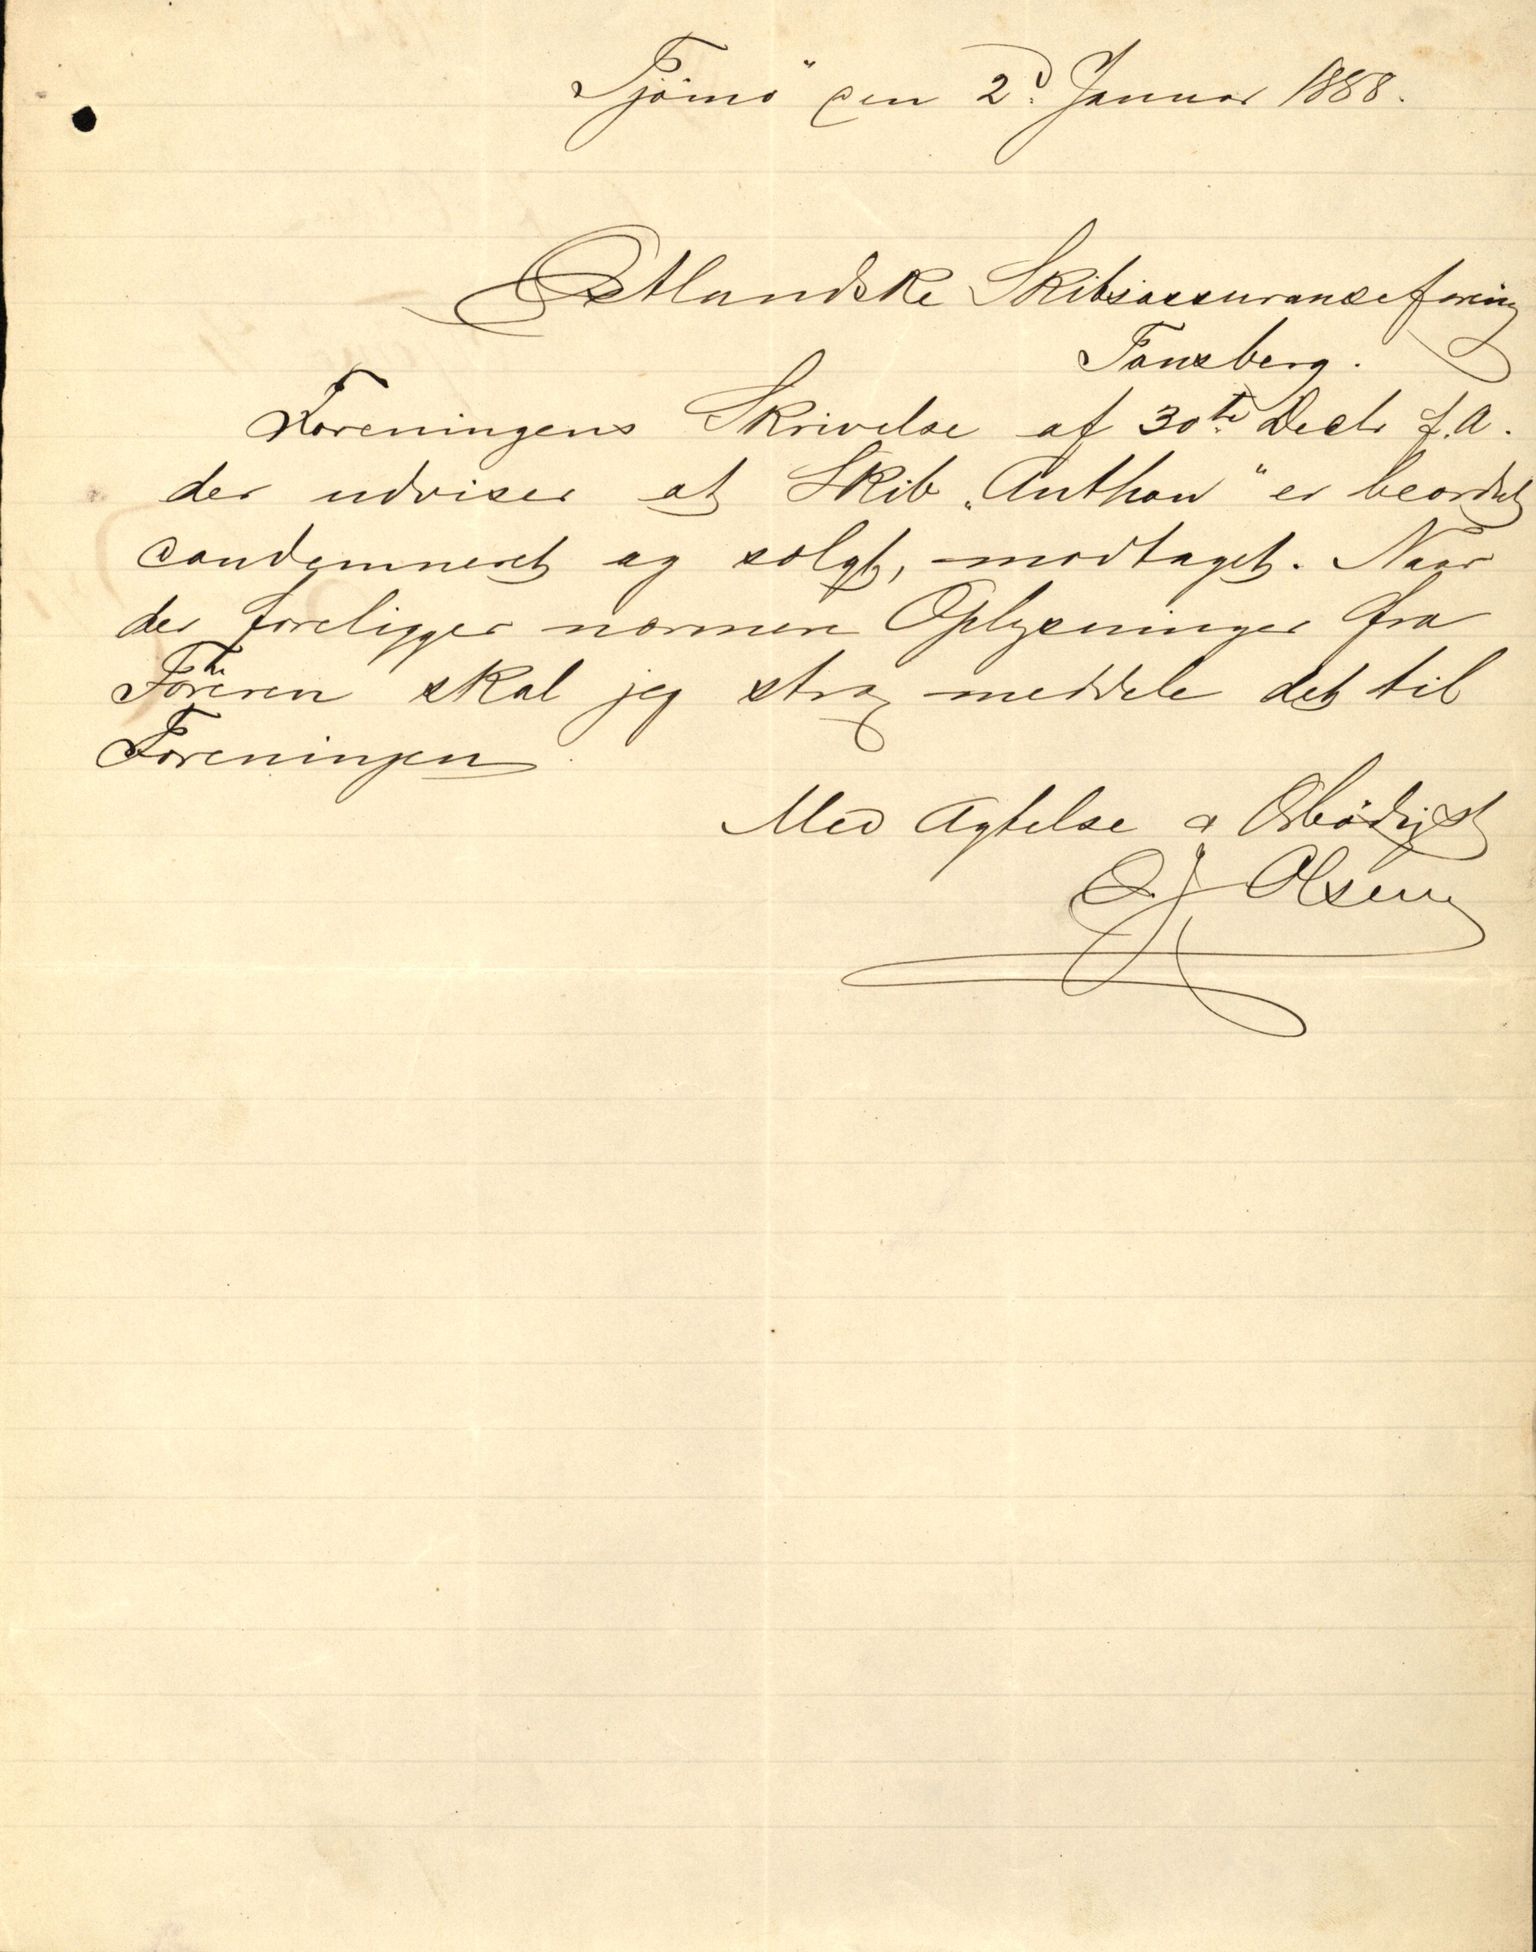 Tjömö den 2d Januar 1888.
Østlandske Skibsassuranceforening
Tønsberg.
Foreningens Skrivelse af 30te Decbr f.A.
der udviser at Skib „Anthon" er beordret
condemneret og solgt, modtaget. Naar
der foreligger nærmere Oplysninger fra
Føreren skal jeg strax meddele det til
Foreningen
Med Agtelse & Ærbødigst
O. J. Olsen